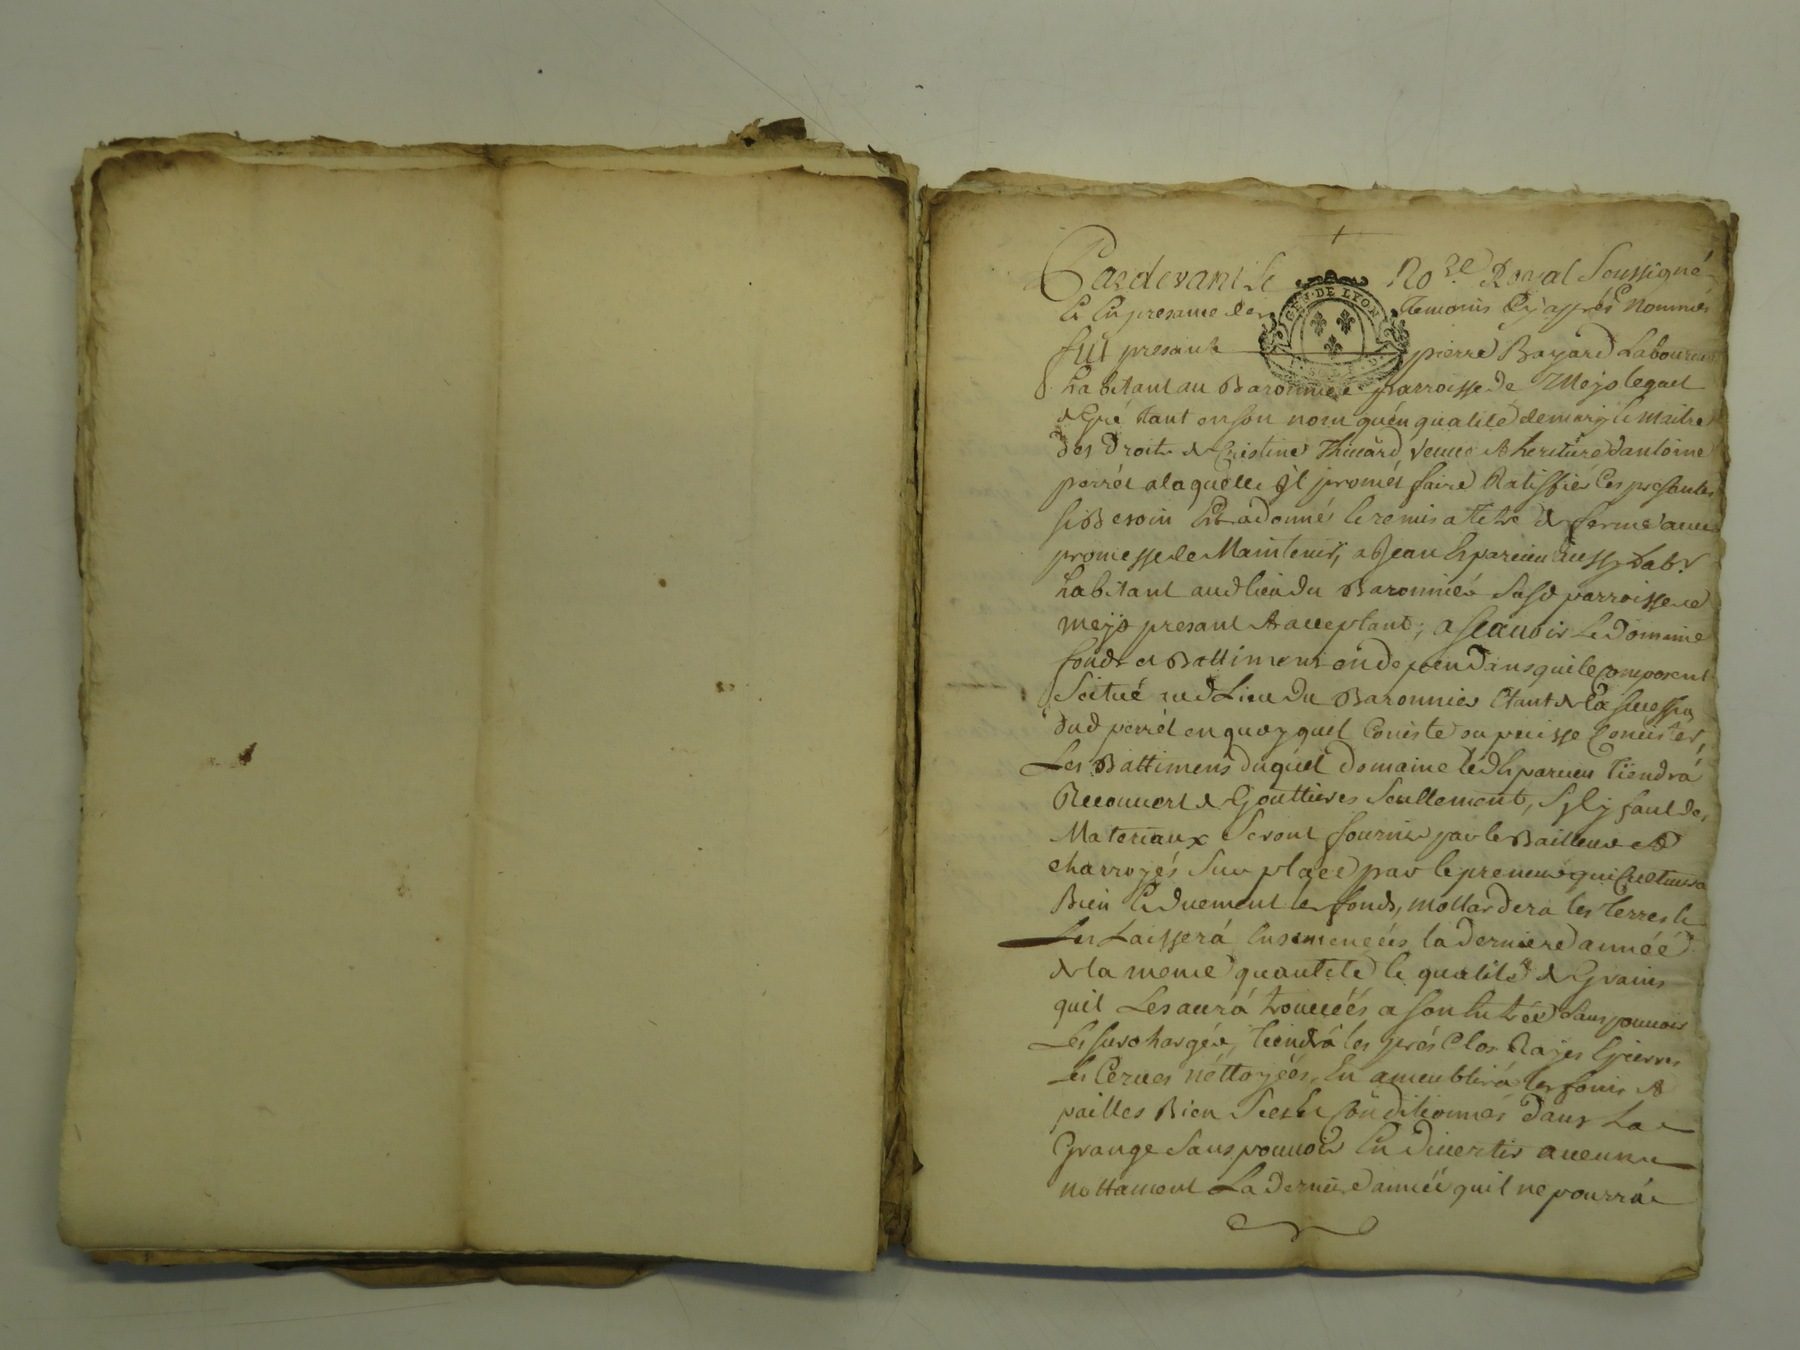 Pardevant le No.re Royal Soussigné
Et En presance des temoins Cy apprés Nommés
GEN. DE LYON
fut presant pierre Bayard Laboureur
habitant au Baronnier parroisse de Meys lequel
de Gré tant en son nom qu'en qualité de mary et Maitre
des Droits de Cristine Thinard veuve et heritiere d'antoine
perrét a laquelle il promét faire Ratiffier Ces presantes
si Besoin Est a donné et remis a titre de ferme avec
promesse de Maintenir, a Jean Esparcieu Aussy Lab.r
habitant aud lieu du Baronnier Susd parroisse de
Meys presant et acceptant; a scavoir Le Domaine
fonds et Battiments en dependans qui le Composent
Scitué aud Lieu du Baronnier Etant de la succession
dud perrét en quoy quil Conciste ou puisse Concister,
Les Battimens duquel Domaine led Esparcieu tiendrá
Recouvert de Gouttieres Seullement, Sy ly faut des
Materiaux Seront fournis par le Bailleur et
charroyés Sur place par le preneur qui Cultivera
Bien Et Duement les fonds, mollardera les terres et
Les Laisserá Ensemencées la derniere année
de la meme quantité et qualité de Grains
quil Les aurá trouvées a son Entrée sans pouvoir
Les surchargér, tiendrá les prés Clos Rayes Epierrés
Les Serves néttoyées, En ameublirá les foins et
pailles Bien Secs et Conditionnés dans La
Grange Sans pouvoir En Divertir aucune
nottament La derniere année quil ne pourrá